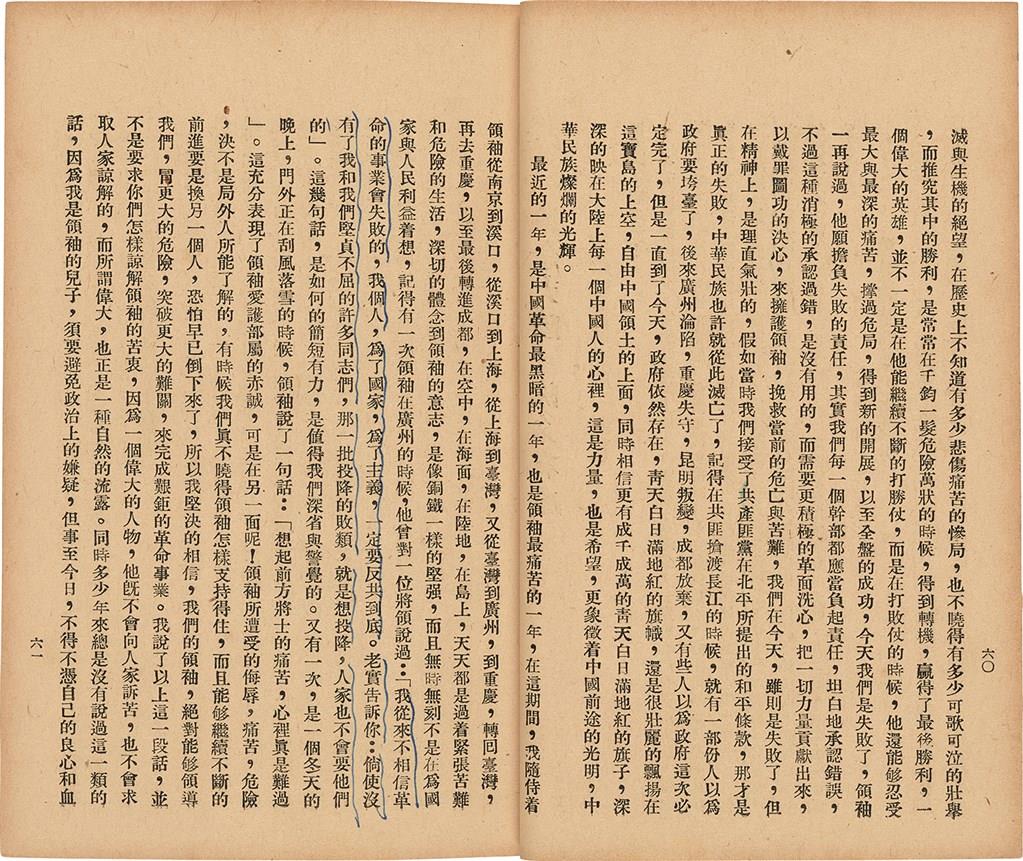 滅與生機的絕望，在歷史上不知道有多少悲傷痛苦的慘局，也不曉得有多少可歌可泣的壯舉
，而推究其中的勝利，是常常在千鈞一髮危險萬狀的時候，得到轉機，贏得了最後勝利，一
個偉大的英雄，並不一定是在他能繼續不斷的打勝仗，而是在打敗仗的時候，他還能够忍受
最大與最深的痛苦，撑過危局，得到新的開展，以至全盤的成功，今天我們是失敗了，領袖
一再說過，他願擔負失敗的責任，其實我們每一個幹部都應當負起責任，坦白地承認錯誤，
不過這種消極的承認過錯，是沒有用的，而需要更積極的革面洗心，把一切力量貢獻出來，
以戴罪圖功的決心，來擁護領袖，挽救當前的危亡與苦難，我們在今天，雖則是失敗了，但
在精神上，是理直氣壯的，假如當時我們接受了共產匪黨在北平所提出的和平條款，那才是
眞正的失敗，中華民族也許就從此滅亡了，記得在共匪搶渡長江的時候，就有一部份人以爲
政府要垮臺了，後來廣州淪陷，重慶失守，昆明叛變，成都放棄，又有些人以爲政府這次必
定完了，但是一直到了今天，政府依然存在，靑天白日滿地紅的旗幟，還是很壯麗的飄揚在
這寶島的上空，自由中國領土的上面，同時相信更有成千成萬的靑天白日滿地紅的旗子，深
深的映在大陸上每一個中國人的心裡，這是力量，也是希望，更象徵着中國前途的光明，中
華民族燦爛的光輝。
最近的一年，是中國革命最黑暗的一年，也是領袖最痛苦的一年，在這期間，我隨侍着
六〇
領袖從南京到溪口，從溪口到上海，從上海到臺灣，又從臺灣到廣州，到重慶，轉回臺灣，
再去重慶，以至最後轉進成都，在空中，在海面，在陸地，在島上，天天都是過着緊張苦難
和危險的生活，深切的體念到領袖的意志，是像銅鐵一樣的堅强，而且無時無刻不是在爲國
家與人民利益着想，記得有一次領袖在廣州的時候，他曾對一位將領說過：「我從來不相信革
命的事業會失敗的，我個人，爲了國家，爲了主義，一定要反共到底。老實告訴你：倘使沒
有了我和我們堅貞不屈的許多同志們，那一批投降的敗類，就是想投降，人家也不會要他們
的」。這幾句話，是如何的簡短有力，是値得我們深省與警覺的。又有一次，是一個冬天的
晚上，門外正在刮風落雪的時候，領袖說了一句話：「想起前方將士的痛苦，心裡眞是難過
」。這充分表現了領袖愛護部屬的赤誠，可是在另一面呢！領袖所遭受的侮辱，痛苦，危險
，決不是局外人所能了解的，有時候我們眞不曉得領袖怎樣支持得住，而且能够繼續不斷的
前進要是換另一個人，恐怕早已倒下來了，所以我堅決的相信，我們的領袖，絕對能够領導
我們，冒更大的危險，突破更大的難關，來完成艱鉅的革命事業。我說了以上這一段話，並
不是要求你們怎樣諒解領袖的苦衷，因爲一個偉大的人物，他旣不會向人家訴苦，也不會求
取人家諒解的，而所謂偉大，也正是一種自然的流露。同時多少年來總是沒有說過這一類的
話，因爲我是領袖的兒子，須要避免政治上的嫌疑，但事至今日，不得不憑自己的良心和血
六一